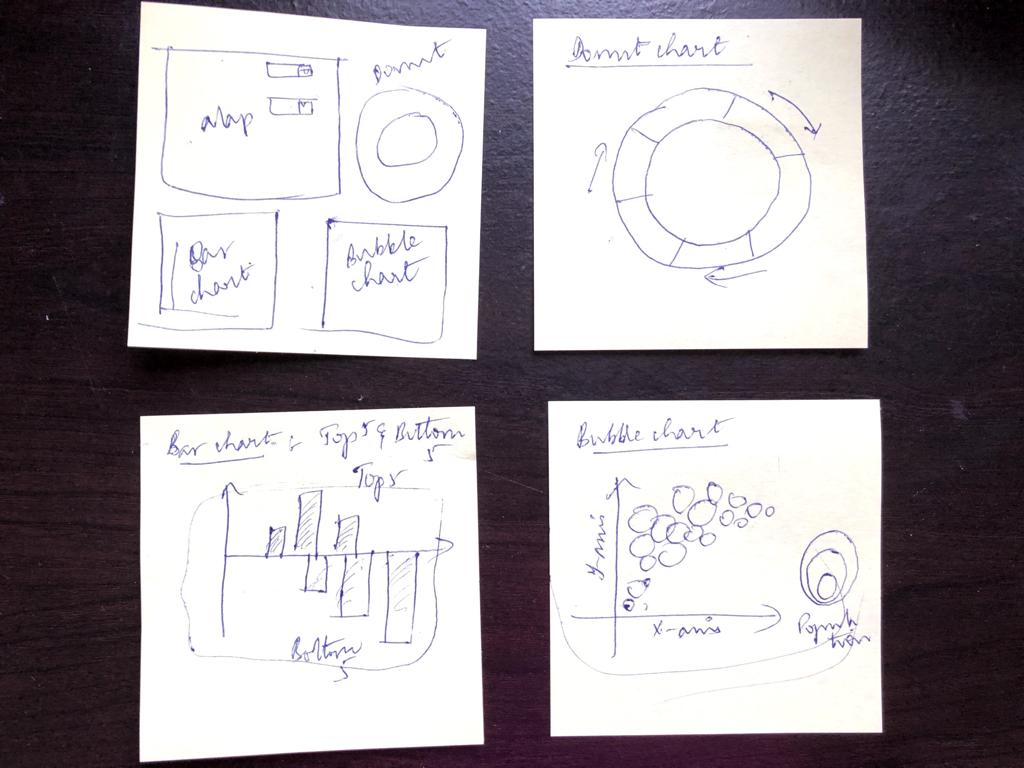 Map
Donut
Bar
chart
Bubble
chart
Donut chart
Bar chart : Top 5 & Bottom
5
Top 5
Bottom
5
Bubble chart
Y-axis
X-axis
Popula
tion